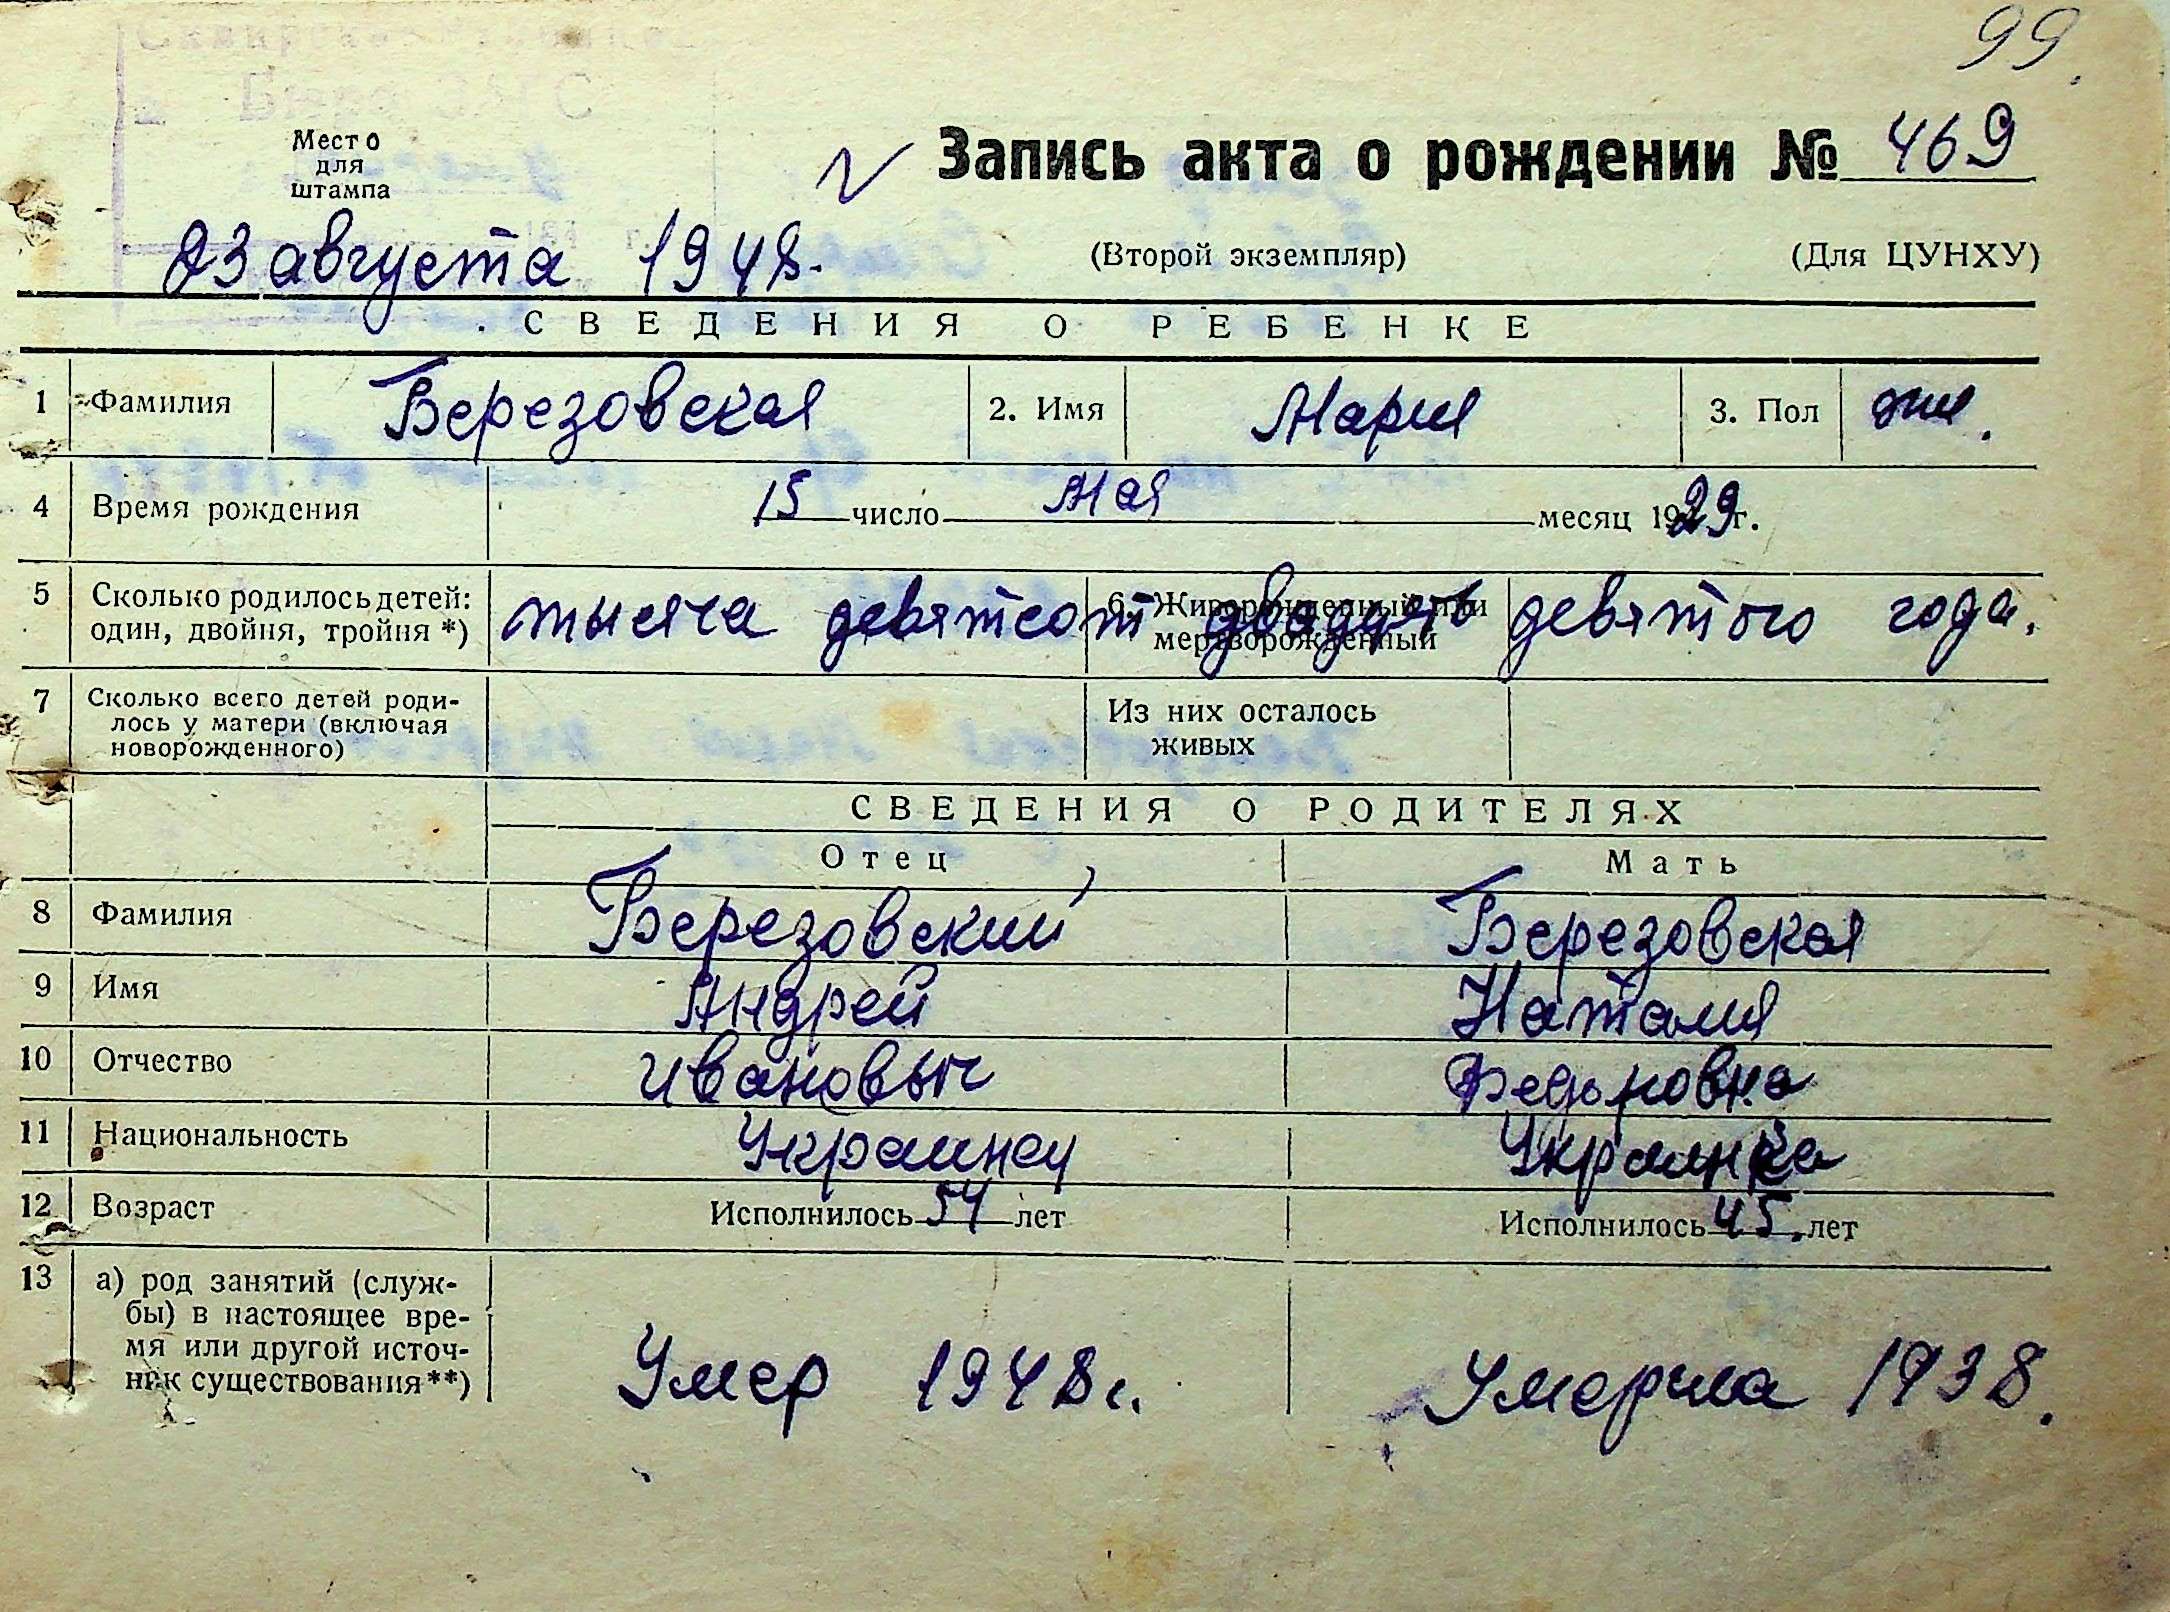 99.
Бюро ЗАГС
Место
для
штампа
Запись акта о рождении № 469
23 августа 1948.
(Второй экземпляр) (Для ЦУНХУ)
СВЕДЕНИЯ О РЕБЕНКЕ
1 Фамилия Березовская 2. Имя Мария 3. Пол жен.
4 Время рождения 15 число Мая месяц 1929 г.
5 Сколько родилось детей: один, двойня, тройня *) 6. Живорожденный или мертворожденный
тысяча девятсот двадцять девятого года.
7 Сколько всего детей роди-
лось у матери (включая
новорожденного) Из них осталось
живых
СВЕДЕНИЯ О РОДИТЕЛЯХ
Отец Мать
8 Фамилия Березовский Березовская
9 Имя Андрей Наталия
10 Отчество Ивановыч
11 Национальность Украинец Украинка
12 Возраст Исполнилось 54 лет Исполнилось 45 лет
13 а) род занятий (служ-
бы) в настоящее вре-
мя или другой источ-
ник существования**)
Умер 1948 г. Умерла 1938.